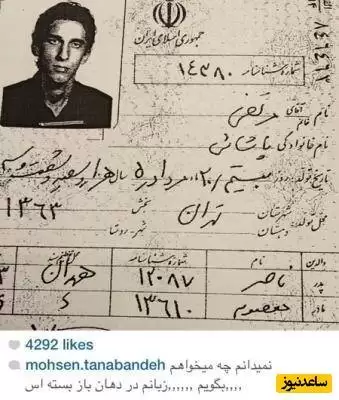 جمهوری اسلامی ایران
شماره شناسنامه ۱۴۳۸۰
نام خانم آقای مرتضی
نام خانوادگی پاشائی
تاریخ تولد: روز بیستم /۲۰/ مرداد ۵ سال هزار و سیصد و شصت و سه
۱۳۶۳
محل تولد: شهرستان تهران بخش
دهستان شهر-روستا
والدین نام شماره شناسنامه
پدر ناصر ۱۲۰۸۷ همدان
مادر معصومه ۱۳۶۱۰
4292 likes
mohsen.tanabandeh نمیدانم چه میخواهم
بگویم ,,,,,,زبانم در دهان باز بسته اس,,,,
ساعدنیوز